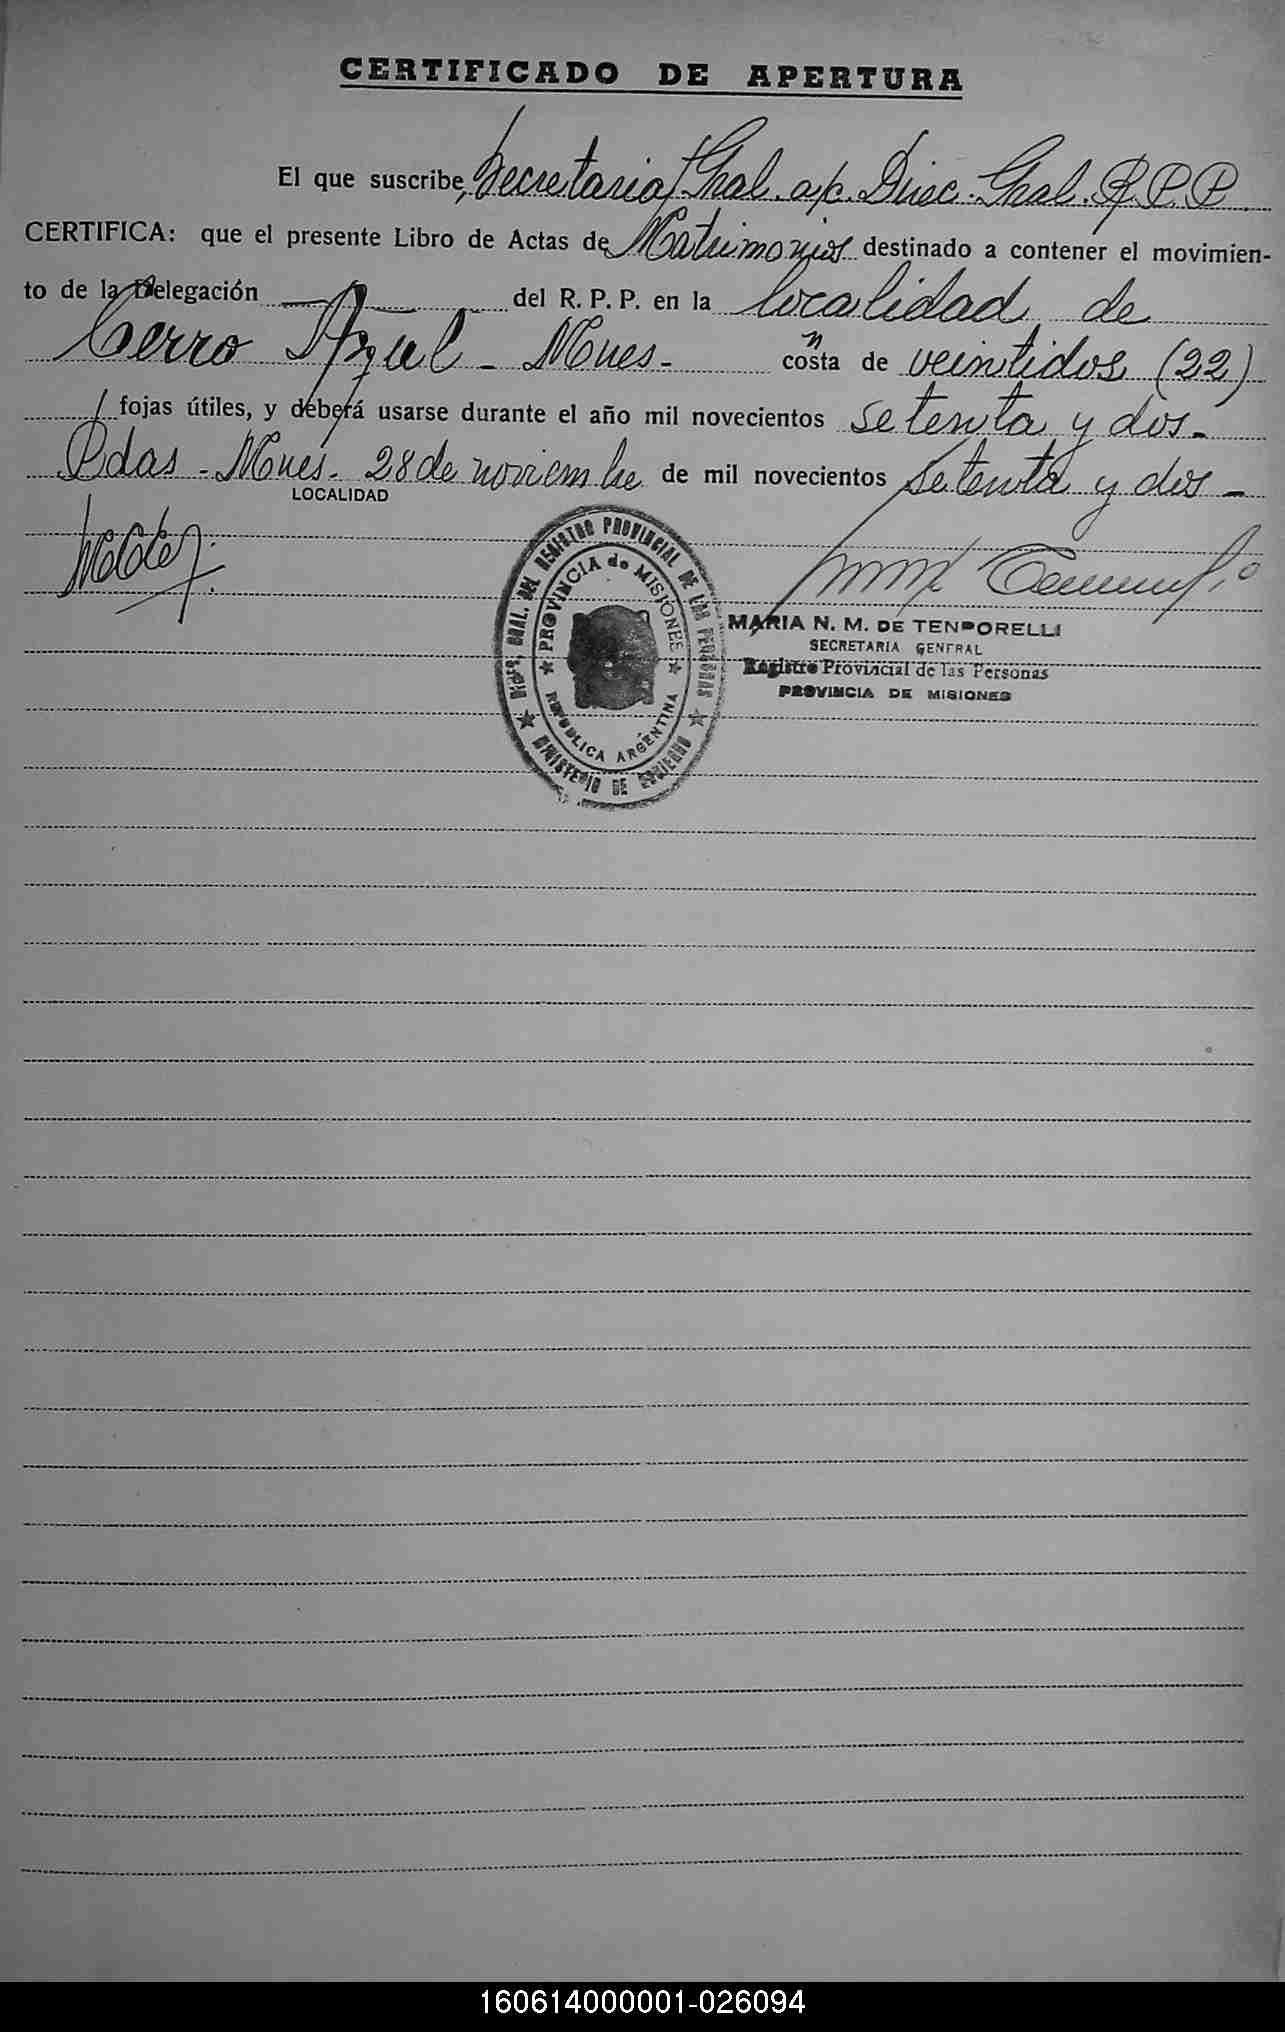 CERTIFICADO DE APERTURA
El que suscribe, Secretaria Gral. a/c. Direc. Gral. R.P.P.
CERTIFICA: que el presente Libro de Actas de Matrimonios destinado a contener el movimien-
to de la Delegación del R. P. P. en la localidad de
Cerro Azul - Mnes - consta de veintidos (22)
fojas útiles, y deberá usarse durante el año mil novecientos setenta y dos -
Pdas - Mnes. 28 de noviembre de mil novecientos setenta y dos -
LOCALIDAD
DIREC. GRAL. DEL REGISTRO PROVINCIAL DE LAS PERSONAS
PROVINCIA de MISIONES
REPUBLICA ARGENTINA
MINISTERIO DE GOBIERNO
MARIA N. M. DE TEMPORELLI
SECRETARIA GENERAL
Registro Provincial de las Personas
PROVINCIA DE MISIONES
160614000001-026094